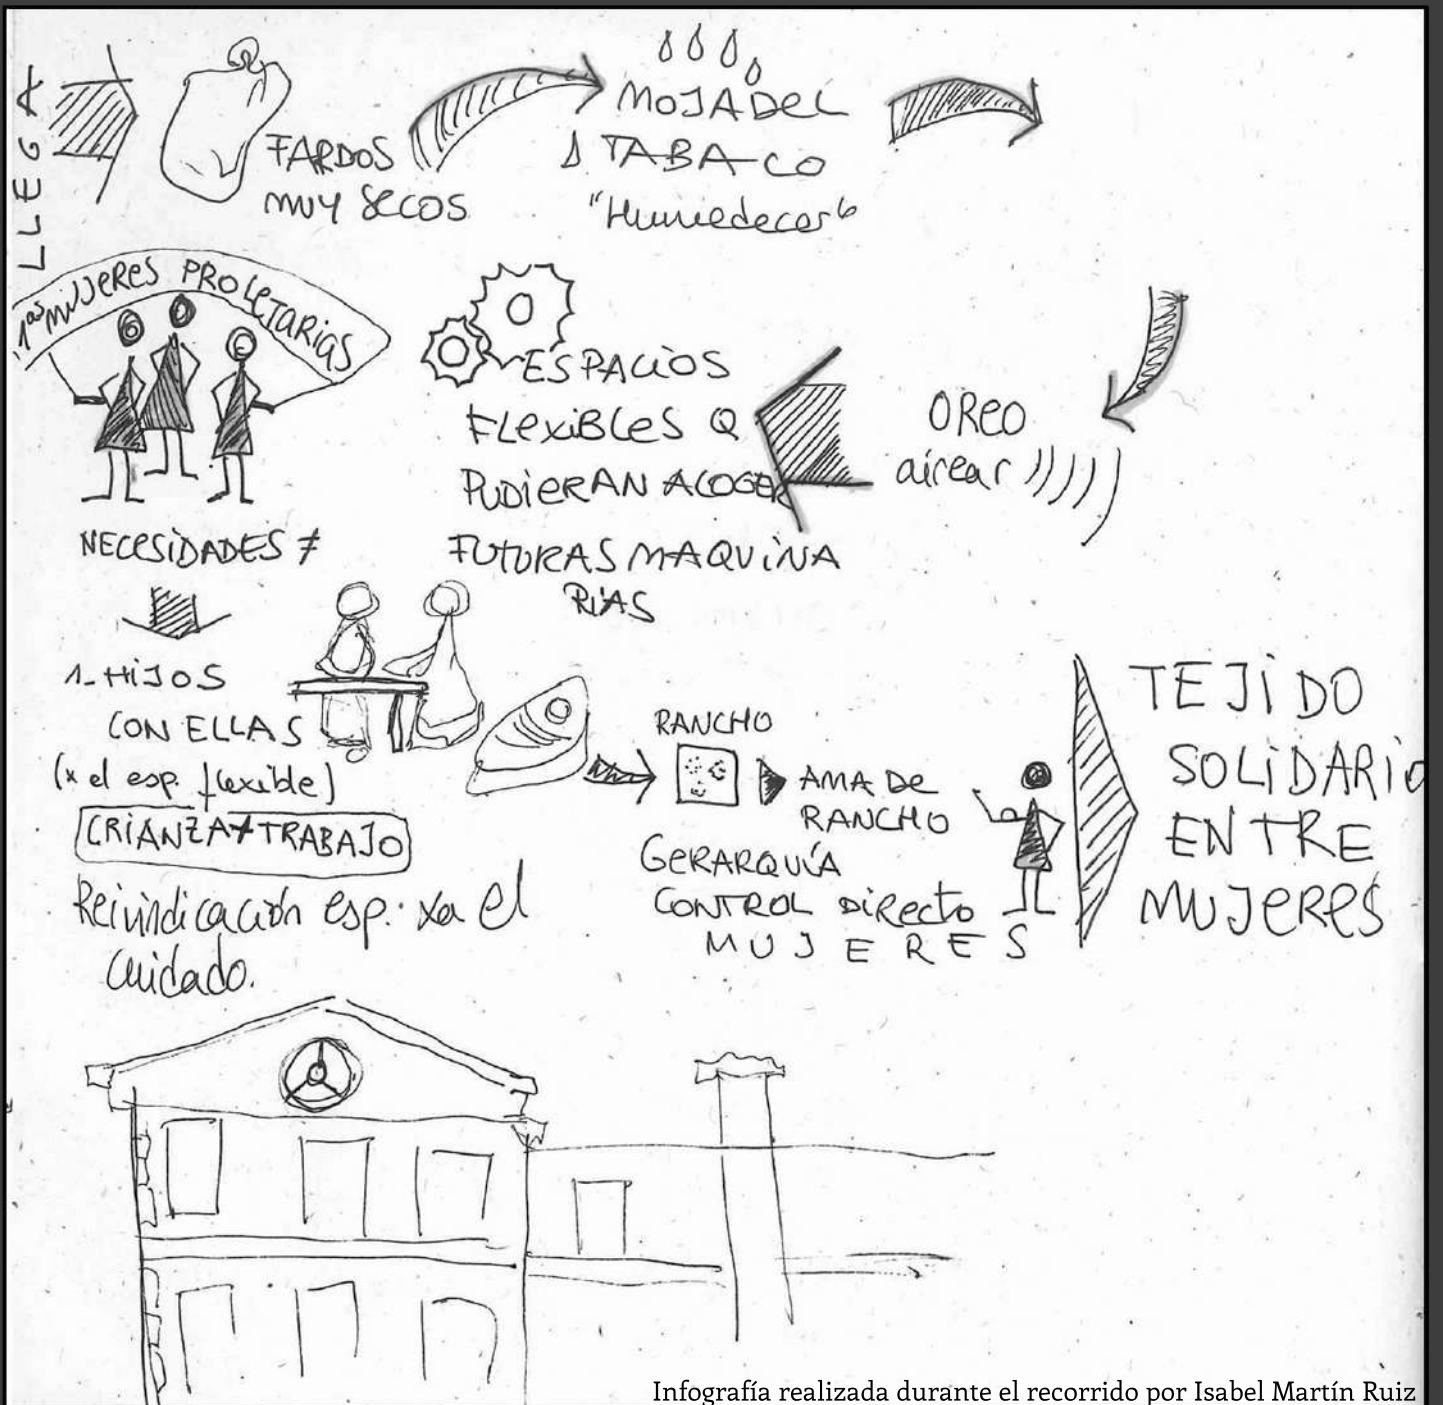 LLEGA
FARDOS
MUY SECOS
MOJADEL
TABACO
"Humedecer"
1as MUJERES PROLETARIAS
OREO
airear
ESPACIOS
FLEXIBLES Q
PUDIERAN ACOGER
FUTURAS MAQUINA
RIAS
NECESIDADES ≠
1- HIJOS
CON ELLAS
(x el esp. flexible)
CRIANZA + TRABAJO
Reivindicación esp. xa el
cuidado.
RANCHO
AMA DE
RANCHO
GERARQUÍA
CONTROL DIRECTO
MUJERES
TEJIDO
SOLIDARIO
ENTRE
MUJERES
Infografía realizada durante el recorrido por Isabel Martín Ruiz